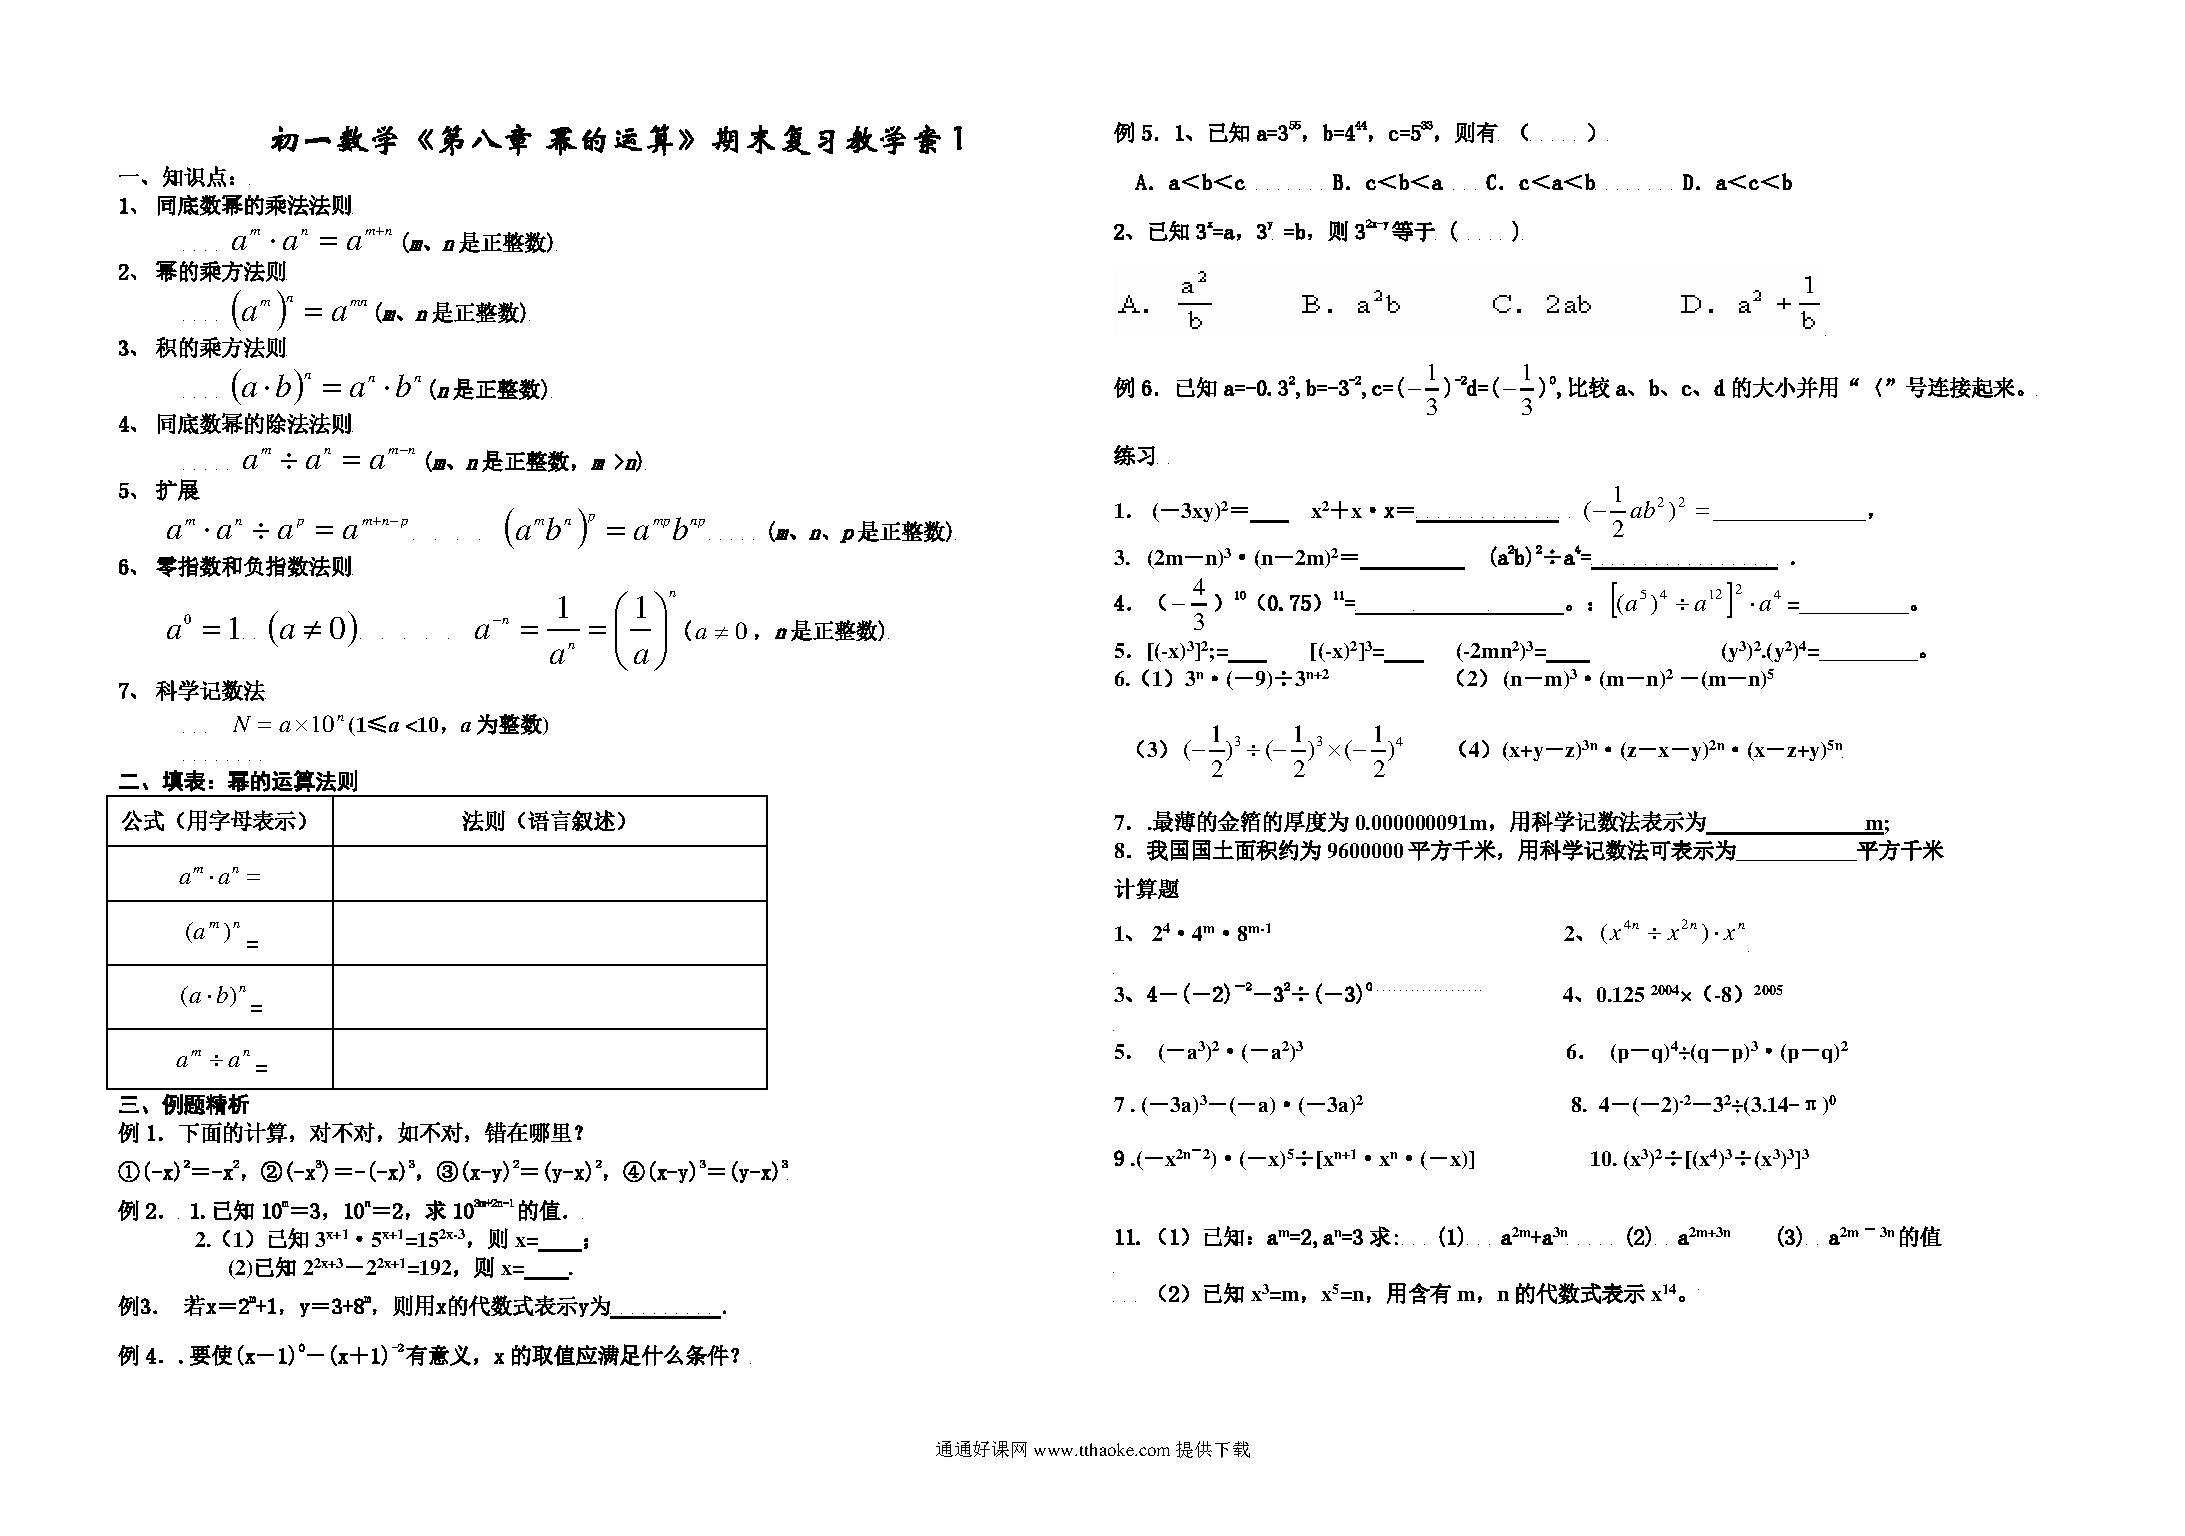 初一数学《第八章 幂的运算》期末复习教学案1
一、知识点：
1、 同底数幂的乘法法则
a^m · a^n = a^{m+n} (m、n是正整数)
2、 幂的乘方法则
(a^m)^n = a^{mn} (m、n是正整数)
3、 积的乘方法则
(a·b)^n = a^n · b^n (n是正整数)
4、 同底数幂的除法法则
a^m ÷ a^n = a^{m−n} (m、n是正整数，m >n)
5、 扩展
a^m · a^n ÷ a^p = a^{m+n−p} (a^m b^n)^p = a^{mp} b^{np} (m、n、p是正整数)
6、 零指数和负指数法则
a^0 = 1 (a ≠ 0) a^{−n} = 1/a^n = (1/a)^n (a ≠ 0，n是正整数)
7、 科学记数法
N = a×10^n (1≤a <10，a为整数)
二、填表：幂的运算法则
公式（用字母表示） 法则（语言叙述）
a^m · a^n =
(a^m)^n =
(a·b)^n =
a^m ÷ a^n =
三、例题精析
例 1．下面的计算，对不对，如不对，错在哪里？
①(-x)^2＝-x^2，②(-x^3)＝-(-x)^3，③(x-y)^2＝(y-x)^2，④(x-y)^3＝(y-x)^3
例 2． 1.已知 10^m＝3，10^n＝2，求 10^{3m+2n-1} 的值．
2.（1）已知 3^{x+1}·5^{x+1}=15^{2x-3}，则 x=____；
(2)已知 2^{2x+3}－2^{2x+1}=192，则 x=____.
例3． 若x＝2^m+1，y＝3+8^m，则用x的代数式表示y为__________．
例 4．.要使(x－1)^0－(x＋1)^{-2}有意义，x 的取值应满足什么条件？
例 5．1、已知 a=3^{55}，b=4^{44}，c=5^{33}，则有 （ ）
A．a＜b＜c B．c＜b＜a C．c＜a＜b D．a＜c＜b
2、已知 3^x=a，3^y =b，则 3^{2x-y} 等于 ( )
A. a^2/b B. a^2b C. 2ab D. a^2 + 1/b
例 6．已知 a=-0.3^2,b=-3^{-2},c=(−1/3)^{-2}d=(−1/3)^0,比较 a、b、c、d 的大小并用“〈”号连接起来。
练习
1． (－3xy)^2＝____ x^2＋x·x＝____________ (−1/2 ab^2)^2 =______________，
3. (2m－n)^3·(n－2m)^2＝_________ (a^2b)^2÷a^4=________________ ．
4．（−4/3）^{10}（0.75）^{11}=__________________。：[(a^5)^4 ÷ a^{12}]^2 · a^4 =__________。
5．[(-x)^3]^2;=____ [(-x)^2]^3=____ (-2mn^2)^3=____ (y^3)^2.(y^2)^4=_________。
6.（1）3^n·(－9)÷3^{n+2} （2） (n－m)^3·(m－n)^2 －(m－n)^5
（3）(−1/2)^3 ÷ (−1/2)^3 × (−1/2)^4 （4）(x+y－z)^{3n}·(z－x－y)^{2n}·(x－z+y)^{5n}
7．.最薄的金箔的厚度为 0.000000091m，用科学记数法表示为______________m;
8．我国国土面积约为 9600000 平方千米，用科学记数法可表示为___________平方千米
计算题
1、 2^4·4^m·8^{m-1} 2、(x^{4n} ÷ x^{2n})·x^n
3、4－(－2)^{－2}－3^2÷(－3)^0 4、0.125 ^{2004}×（-8）^{2005}
5． (－a^3)^2·(－a^2)^3 6． (p－q)^4÷(q－p)^3·(p－q)^2
7 . (－3a)^3－(－a)·(－3a)^2 8. 4－(－2)^{-2}－3^2÷(3.14−π)^0
9 .(－x^{2n－2})·(－x)^5÷[x^{n+1}·x^n·(－x)] 10. (x^3)^2÷[(x^4)^3÷(x^3)^3]^3
11.（1）已知：a^m=2, a^n=3 求: (1) a^{2m}+a^{3n} (2) a^{2m+3n} (3) a^{2m－3n} 的值
（2）已知 x^3=m，x^5=n，用含有 m，n 的代数式表示 x^{14}。
通通好课网 www.tthaoke.com 提供下载